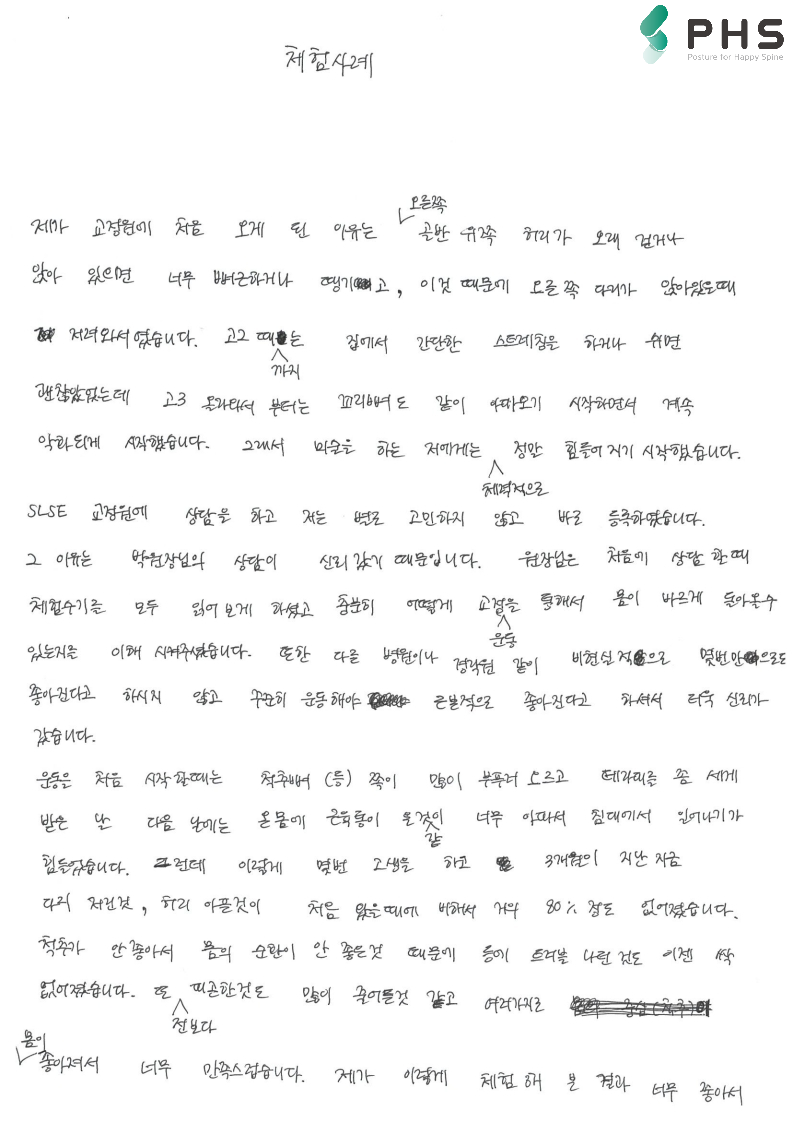 PHS
Posture for Happy Spine
체험사례
오른쪽
제가 교정원에 처음 오게 된 이유는 골반 위쪽 허리가 오래 걷거나
앉아 있으면 너무 뻐근하거나 땡기고, 이것 때문에 오른쪽 다리가 앉아있을때
저려와서 였습니다. 고2 때는 집에서 간단한 스트레칭을 하거나 쉬면
까지
괜찮았었는데 고3 올라와서 부터는 꼬리뼈도 같이 아파오기 시작하면서 계속
악화되게 시작했습니다. 그래서 미술을 하는 저에게는 정말 힘들어지기 시작했습니다.
체력적으로
SLSE 교정원에 상담을 하고 저는 별로 고민하지 않고 바로 등록하였습니다.
그 이유는 박원장님의 상담이 신뢰 갔기 때문입니다. 원장님은 처음에 상담 할때
체험수기를 모두 읽어 보게 하셨고 충분히 어떻게 교정을 통해서 몸이 바르게 돌아올수
운동
있는지를 이해 시켜주셨습니다. 또한 다른 병원이나 경락원 같이 비현실적으로 몇번만으로도
좋아진다고 하시지 않고 꾸준히 운동해야 근본적으로 좋아진다고 하셔서 더욱 신뢰가
갔습니다.
운동을 처음 시작 할때는 척추뼈 (등) 쪽이 많이 부풀어 오르고 테라피를 좀 세게
받은 날 다음 날에는 온몸에 근육통이 온것이 너무 아파서 침대에서 일어나기가
같
힘들었습니다. 그런데 이렇게 몇번 고생을 하고 3개월이 지난 지금
다리 저린것, 허리 아픈것이 처음 왔을때에 비해서 거의 80% 정도 없어졌습니다.
척추가 안좋아서 몸의 순환이 안 좋은것 때문에 등에 트러블 나던 것도 이젠 싹
없어졌습니다. 또 피곤한것도 많이 줄어든것 같고 여러가지로
전보다
몸이
좋아져서 너무 만족스럽습니다. 제가 이렇게 체험해 본 결과 너무 좋아서